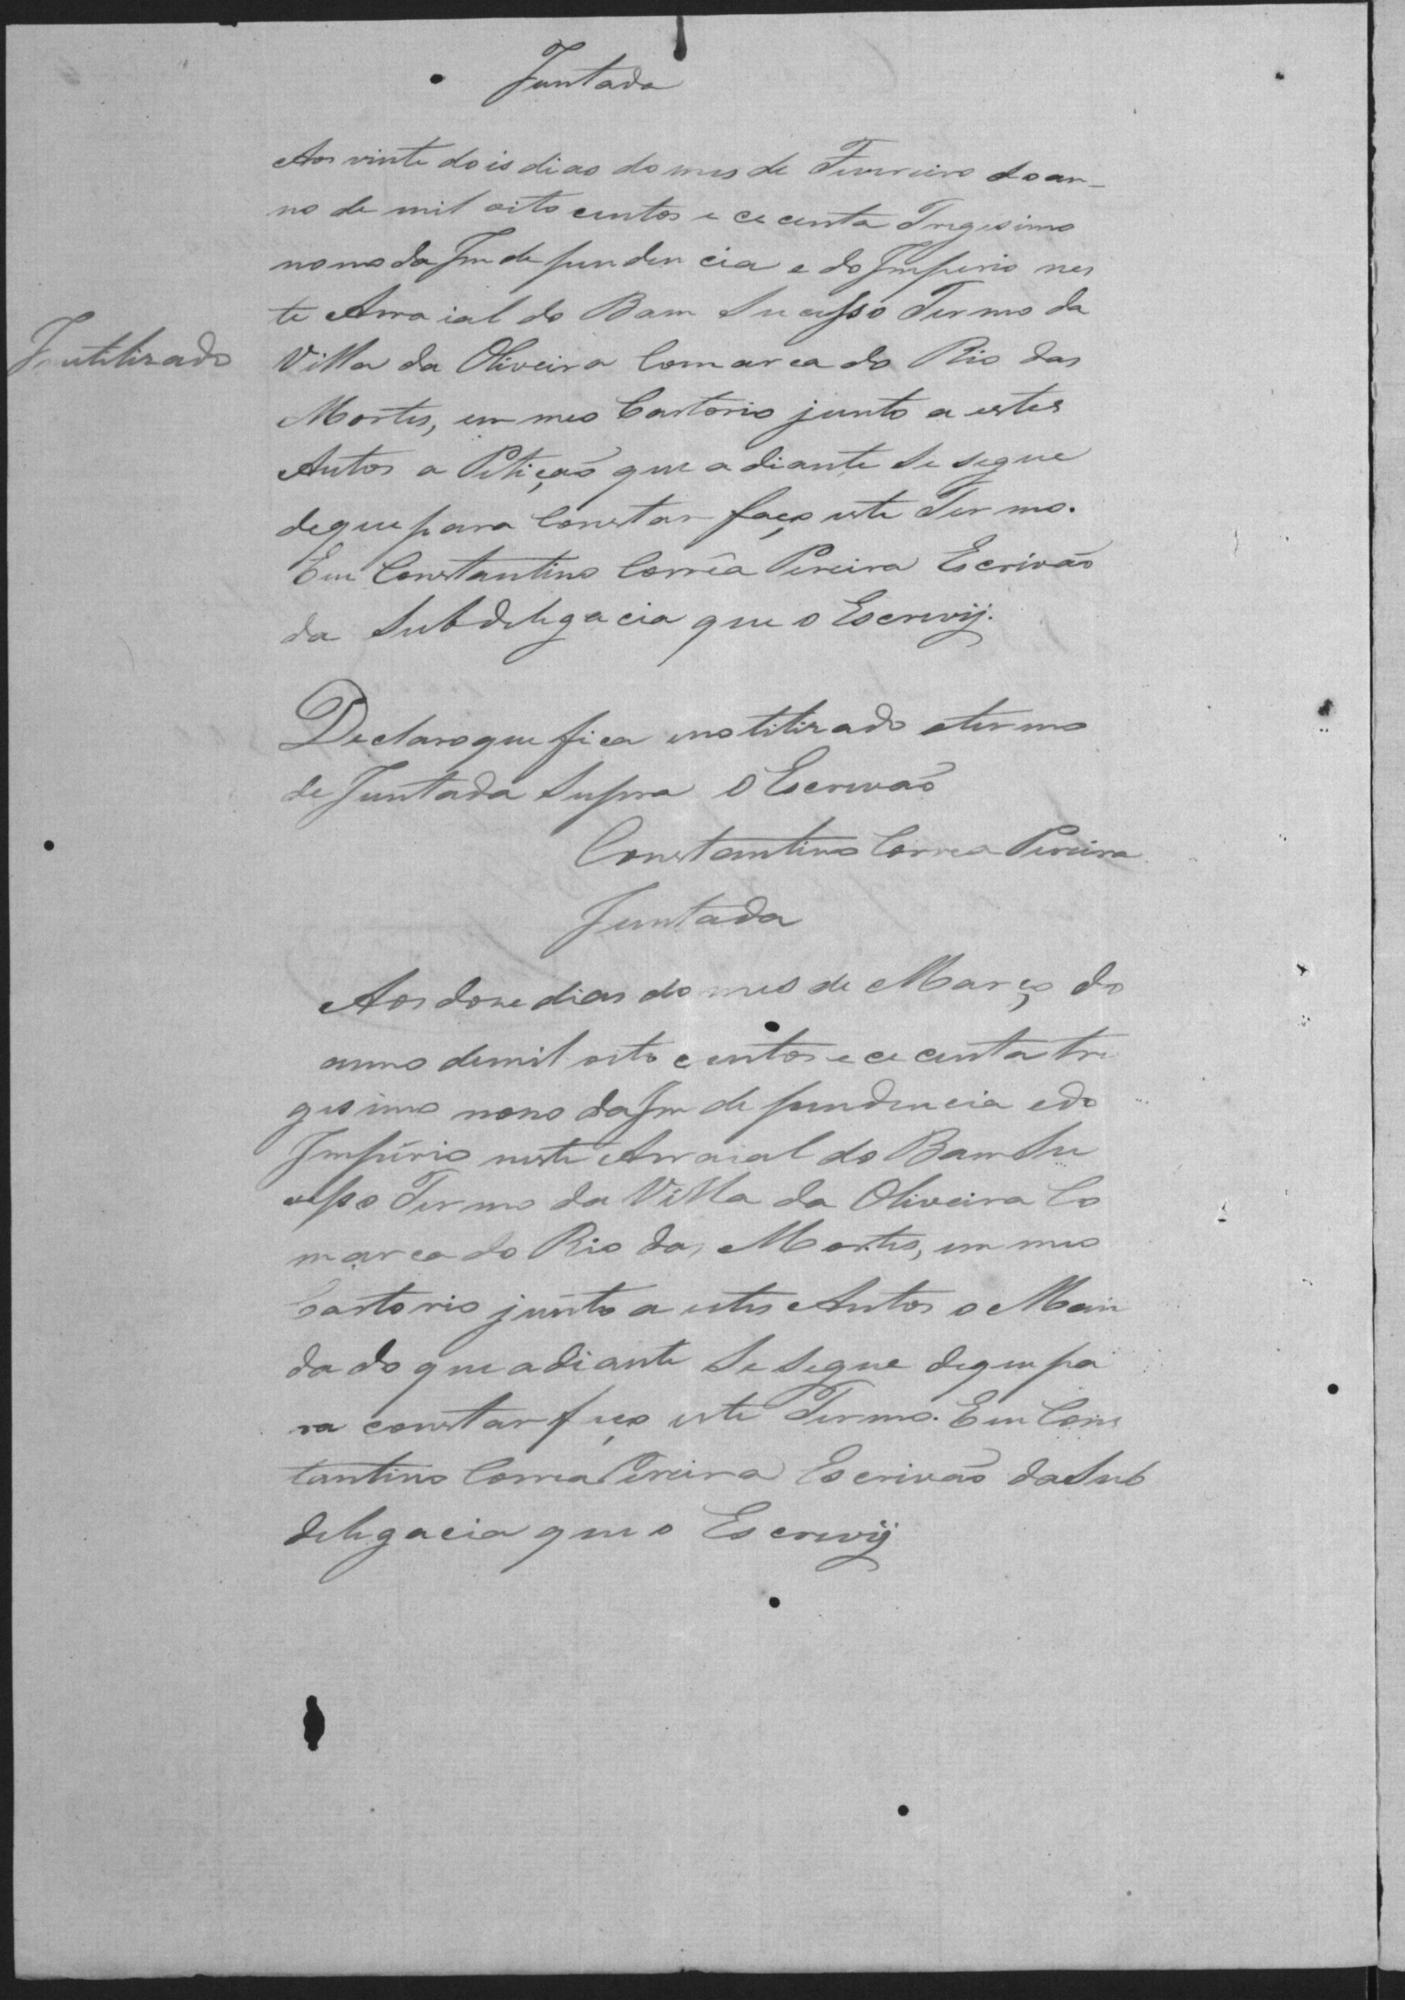 Juntada
Aos vinte dois dias do mes de Fevereiro do an-
no de mil oito centos e cecenta Tregesimo
nono da Independencia e do Imperio nes
te Arraial do Bam Sucesso Termo da
Inutilizado
Villa da Oliveira Comarca do Rio das
Mortes, em meo Cartorio junto a estes
Autos a Petição que a diante se segue
de que para Constar faço este Termo.
Eu Constantino Corrêa Pereira Escrivão
da Subdelegacia que o Escrevij.
Declaro que fica inotilizado o termo
de Juntada Supra O Escrivão
Constantino Correa Pereira
Juntada
Aos doze dias do mes de Março do
anno de mil oito centos e cecenta tre
gesimo nono da Independencia e do
Império neste Arraial do Bam Su
cesso Termo da Villa da Oliveira Co
marca do Rio das Mortes, em meo
Cartorio junto a estes Autos o Man
dado que a diante se segue de que pa
ra constar faço este Termo. Eu Cons
tantino Correa Pereira Escrivão da Sub
delegacia que o Escrevij